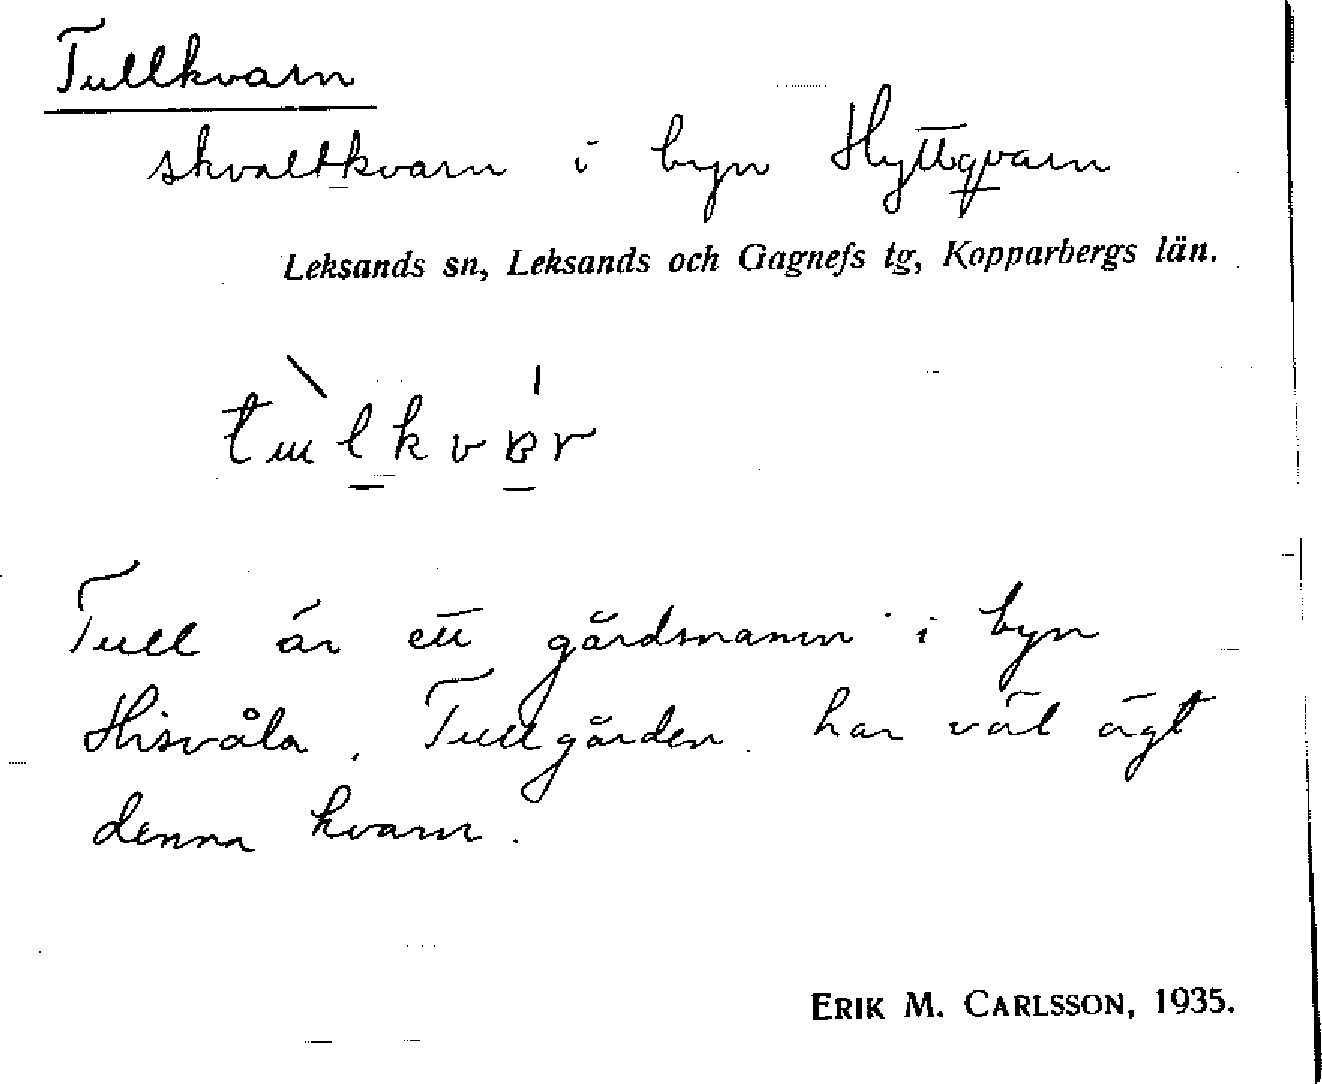 Tullkvarn
skvaltkvarn i byn Hyttqvarn
Leksands sn, Leksands och Gagnefs tg, Kopparbergs län.
Tull är ett gårdsnamn i byn
Hisvåla. Tullgården har väl ägt
denna kvarn.
ERIK M. CARLSSON, 1935.